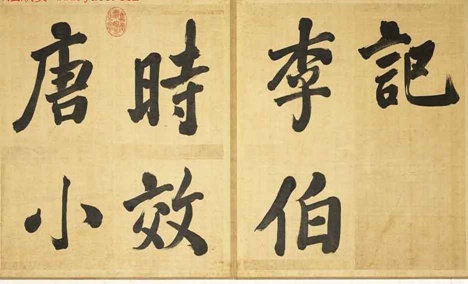 記
李伯
時效
唐小